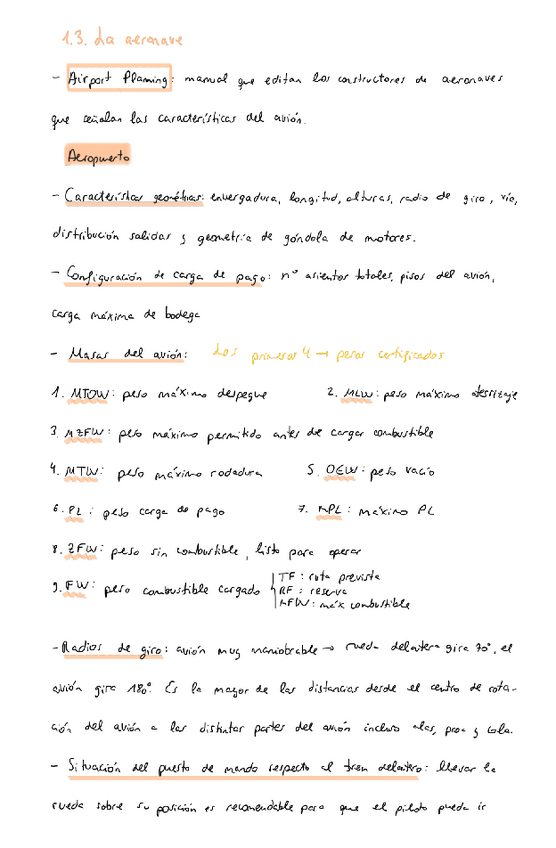 1.3. La aeronave
- Airport Planning: manual que editan los constructores de aeronaves
que señalan las características del avión.
Aeropuerto
- Características geométricas: envergadura, longitud, alturas, radio de giro, vía,
distribución salidas y geometría de góndola de motores.
- Configuración de carga de pago: nº asientos totales, pisos del avión,
carga máxima de bodega
- Masas del avión: Los primeros 4 → pesos certificados
1. MTOW: peso máximo despegue 2. MLW: peso máximo aterrizaje
3. MZFW: peso máximo permitido antes de cargar combustible
4. MTW: peso máximo rodadura 5. OEW: peso vacío
6. PL: peso carga de pago 7. MPL: máximo PL
8. ZFW: peso sin combustible, listo para operar
9. FW: peso combustible cargado TF: ruta prevista
RF: reserva
MFW: máx combustible
- Radios de giro: avión muy maniobrable → rueda delantera gira 70º, el
avión gira 180º. Es la mayor de las distancias desde el centro de rota-
ción del avión a las distintas partes del avión incluso alas, proa y cola.
- Situación del puesto de mando respecto al tren delantero: llevar la
rueda sobre su posición es recomendable para que el piloto pueda ir